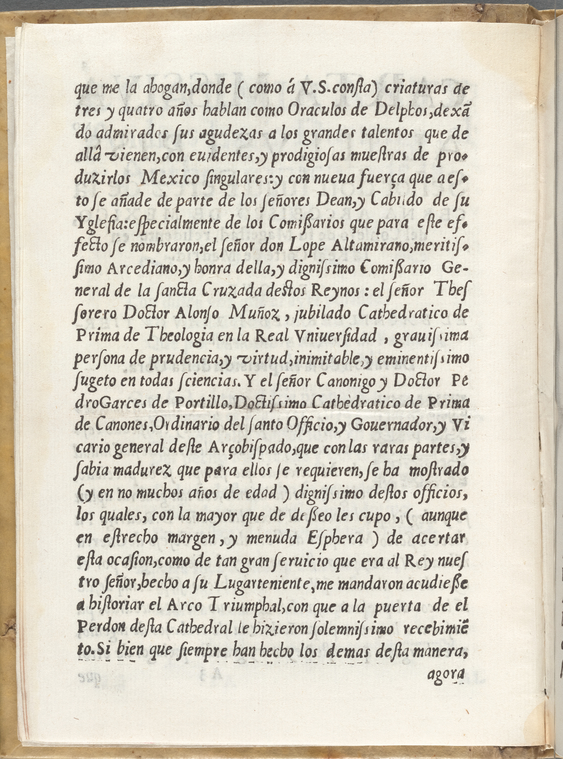 que me la abogan,donde ( como á V.S.consta) criaturas de
tres y quatro años hablan como Oraculos de Delphos,dexã
do admirados sus agudezas a los grandes talentos que de
allâ vienen,con euidentes,y prodigiosas muestras de pro-
duzirlos Mexico singulares:y con nueua fuerça que a es-
to se añade de parte de los señores Dean,y Cabildo de su
Yglesia:especialmente de los Comissarios que para este ef-
fecto se nombraron,el señor don Lope Altamirano,meritis-
simo Arcediano,y honra della,y dignissimo Comissario Ge-
neral de la sancta Cruzada destos Reynos : el señor Thes
sorero Doctor Alonso Muñoz , jubilado Cathedratico de
Prima de Theologia en la Real Vniuersidad , grauissima
persona de prudencia,y virtud,inimitable,y eminentissimo
sugeto en todas sciencias. Y el señor Canonigo y Doctor Pe
droGarces de Portillo,Doctissimo Cathedratico de Prima
de Canones,Ordinario del santo Officio,y Gouernador,y Vi
cario general deste Arçobispado,que con las raras partes,y
sabia madurez que para ellos se requieren,se ha mostrado
(y en no muchos años de edad ) dignissimo destos officios,
los quales, con la mayor que de desseo les cupo, ( aunque
en estrecho margen , y menuda Esphera ) de acertar
esta ocasion,como de tan gran seruicio que era al Rey nues
tro señor,hecho a su Lugarteniente,me mandaron acudiesse
a historiar el Arco Triumphal,con que a la puerta de el
Perdon desta Cathedral le hizieron solemnissimo recebimiẽ
to.Si bien que siempre han hecho los demas desta manera,
agora